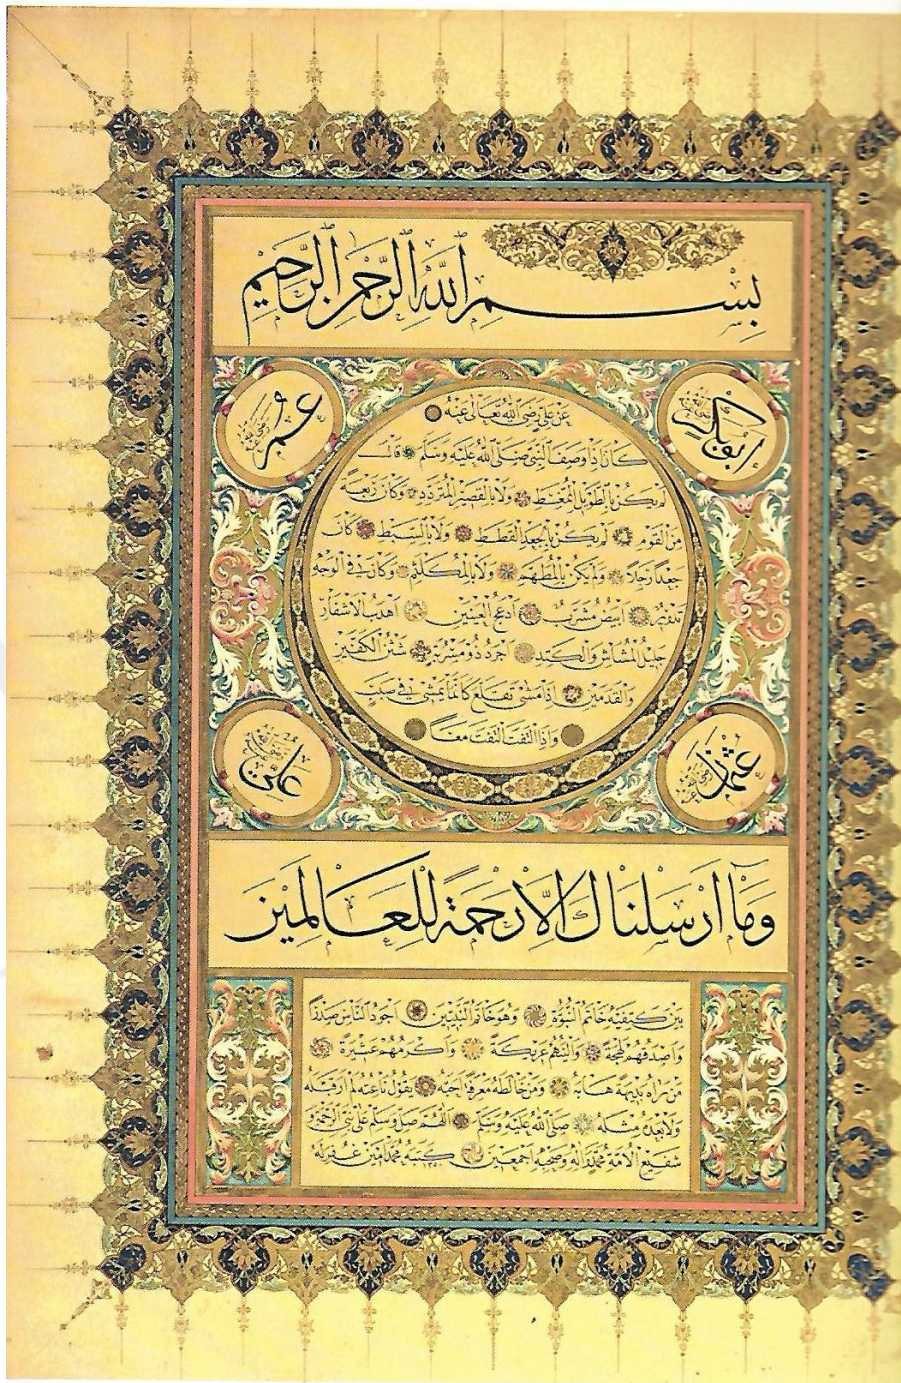 بِسْمِ اللَّهِ الرَّحْمٰنِ الرَّحِيمِ
ابوبكر رضي الله عنه
عمر رضي الله عنه
عن علي رضي الله تعالى عنه
كان اذا وصف النبي صلى الله عليه وسلم قال
لم يكن بالطويل الممغط ولا بالقصير المتردد وكان ربعة
من القوم لم يكن بالجعد القطط ولا بالسبط كان
جعدا رجلا ولم يكن بالمطهم ولا بالمكلثم وكان في الوجه
تدوير ابيض مشرب ادعج العينين اهدب الاشفار
جليل المشاش والكتد اجرد ذو مسربة شثن الكفين
والقدمين اذا مشى تقلع كانما يمشي في صبب
واذا التفت التفت معا
عثمان رضي الله عنه
علي رضي الله عنه
وما ارسلناك الا رحمة للعالمين
بين كتفيه خاتم النبوة وهو خاتم النبيين اجود الناس صدرا
واصدقهم لهجة والينهم عريكة واكرمهم عشيرة
من رآه بديهة هابه ومن خالطه معرفة احبه يقول ناعته لم ار قبله
ولا بعده مثله صلى الله عليه وسلم اللهم صل وسلم على نبي الرحمة
شفيع الامة محمد وآله وصحبه اجمعين كتبه محمد امين غفر له